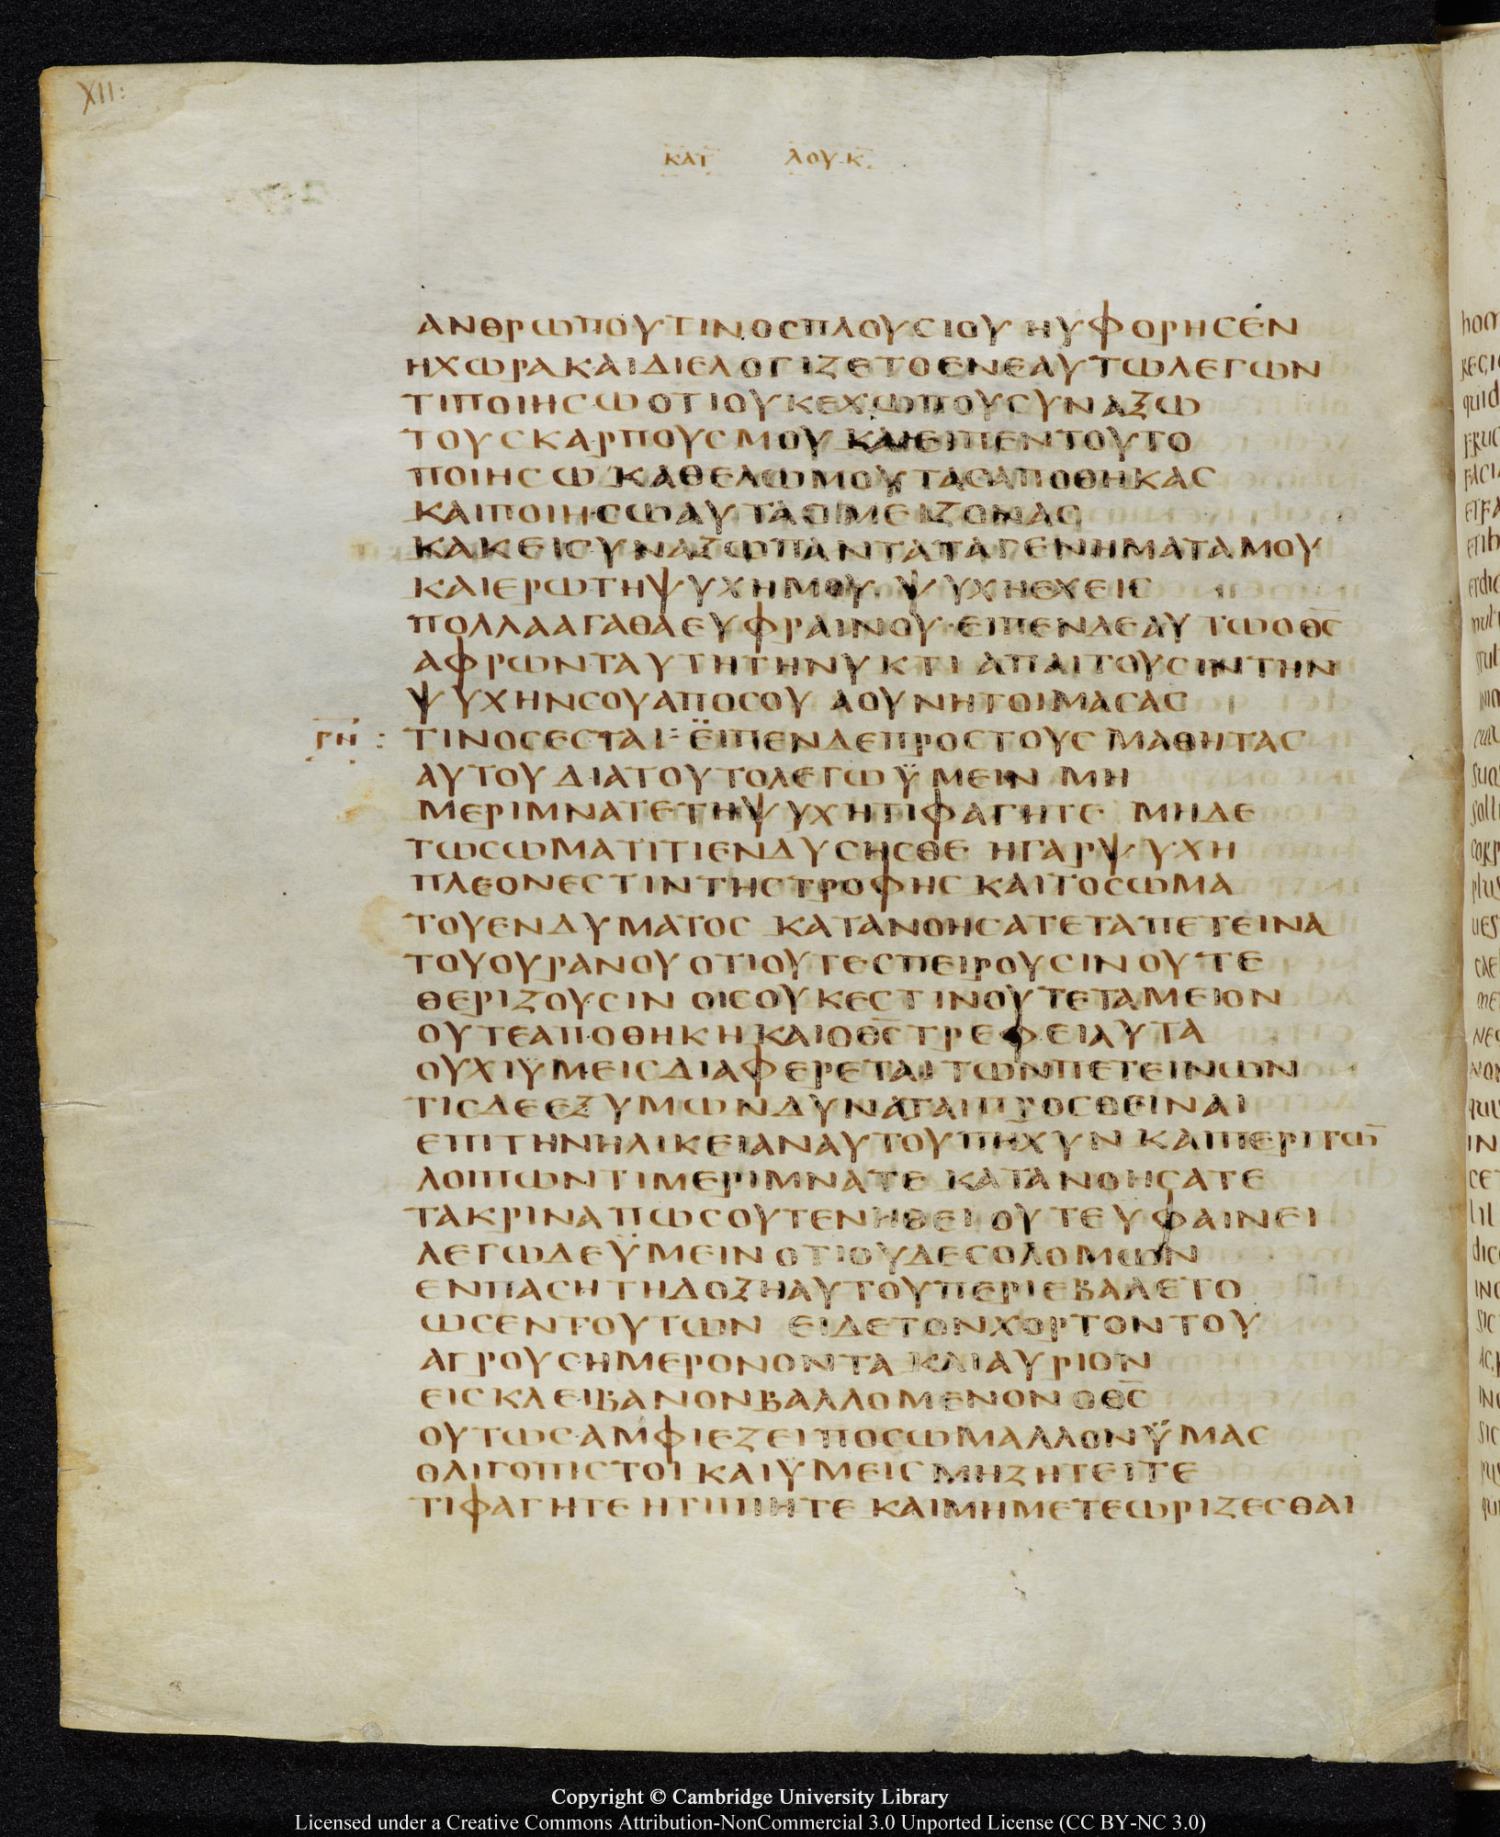 XII:
ΚΑΤ ΛΟΥΚ
ΑΝΘΡΩΠΟΥΤΙΝΟСΠΛΟΥСΙΟΥ ΗΥΦΟΡΗСΕΝ
ΗΧΩΡΑΚΑΙΔΙΕΛΟΓΙΖΕΤΟΕΝΕΑΥΤΩΛΕΓΩΝ
ΤΙΠΟΙΗСΩΟΤΙΟΥΚΕΧΩΠΟΥСΥΝΑΞΩ
ΤΟΥСΚΑΡΠΟΥСΜΟΥ ΚΑΙΕΙΠΕΝΤΟΥΤΟ
ΠΟΙΗСΩ ΚΑΘΕΛΩΜΟΥΤΑСΑΠΟΘΗΚΑС
ΚΑΙΠΟΙΗСΩΑΥΤΑСΜΕΙΖΟΝΑС
ΚΑΚΕΙСΥΝΑΞΩΠΑΝΤΑΤΑΓΕΝΗΜΑΤΑΜΟΥ
ΚΑΙΕΡΩΤΗΨΥΧΗΜΟΥ ΨΥΧΗΕΧΕΙС
ΠΟΛΛΑΑΓΑΘΑΕΥΦΡΑΙΝΟΥ·ΕΙΠΕΝΔΕΑΥΤΩΟΘ̅С̅
ΑΦΡΩΝΤΑΥΤΗΤΗΝΥΚΤΙ ΑΠΑΙΤΟΥСΙΝΤΗΝ
ΨΥΧΗΝСΟΥΑΠΟСΟΥ ΑΟΥΝΗΤΟΙΜΑСΑС
ΓΗ : ΤΙΝΟСΕСΤΑΙ: ΕΙΠΕΝΔΕΠΡΟСΤΟΥСΜΑΘΗΤΑС
ΑΥΤΟΥ ΔΙΑΤΟΥΤΟΛΕΓΩΫΜΕΙΝ ΜΗ
ΜΕΡΙΜΝΑΤΕΤΗΨΥΧΗΤΙΦΑΓΗΤΕ ΜΗΔΕ
ΤΩСΩΜΑΤΙΤΙΕΝΔΥСΗСΘΕ ΗΓΑΡΨΥΧΗ
ΠΛΕΟΝΕСΤΙΝΤΗСΤΡΟΦΗС ΚΑΙΤΟСΩΜΑ
ΤΟΥΕΝΔΥΜΑΤΟС ΚΑΤΑΝΟΗСΑΤΕΤΑΠΕΤΕΙΝΑ
ΤΟΥΟΥΡΑΝΟΥ ΟΤΙΟΥΤΕСΠΕΙΡΟΥСΙΝ ΟΥΤΕ
ΘΕΡΙΖΟΥСΙΝ ΟΙСΟΥΚΕСΤΙΝΟΥΤΕΤΑΜΕΙΟΝ
ΟΥΤΕΑΠΟΘΗΚΗ ΚΑΙΟΘ̅С̅ΤΡΕΦΕΙΑΥΤΑ
ΟΥΧΙΫΜΕΙСΔΙΑΦΕΡΕΤΑΙΤΩΝΠΕΤΕΙΝΩΝ
ΤΙСΔΕΕΞΥΜΩΝΔΥΝΑΤΑΙΠΡΟСΘΕΙΝΑΙ
ΕΠΙΤΗΝΗΛΙΚΕΙΑΝΑΥΤΟΥΠΗΧΥΝ ΚΑΙΠΕΡΙΤΩ̅
ΛΟΙΠΩΝΤΙΜΕΡΙΜΝΑΤΕ ΚΑΤΑΝΟΗСΑΤΕ
ΤΑΚΡΙΝΑ ΠΩСΟΥΤΕΝΗΘΕΙ ΟΥΤΕΥΦΑΙΝΕΙ
ΛΕΓΩΔΕΫΜΕΙΝ ΟΤΙΟΥΔΕСΟΛΟΜΩΝ
ΕΝΠΑСΗΤΗΔΟΞΗΑΥΤΟΥΠΕΡΙΕΒΑΛΕΤΟ
ΩСΕΝΤΟΥΤΩΝ ΕΙΔΕΤΟΝΧΟΡΤΟΝΤΟΥ
ΑΓΡΟΥСΗΜΕΡΟΝΟΝΤΑ ΚΑΙΑΥΡΙΟΝ
ΕΙСΚΛΕΙΒΑΝΟΝΒΑΛΛΟΜΕΝΟΝ ΟΘ̅С̅
ΟΥΤΩСΑΜΦΙΕΖΕΙΠΟСΩΜΑΛΛΟΝΫΜΑС
ΟΛΙΓΟΠΙСΤΟΙ ΚΑΙΫΜΕΙСΜΗΖΗΤΕΙΤΕ
ΤΙΦΑΓΗΤΕ ΗΤΙΠΙΗΤΕ ΚΑΙΜΗΜΕΤΕΩΡΙΖΕСΘΑΙ
Copyright © Cambridge University Library
Licensed under a Creative Commons Attribution-NonCommercial 3.0 Unported License (CC BY-NC 3.0)